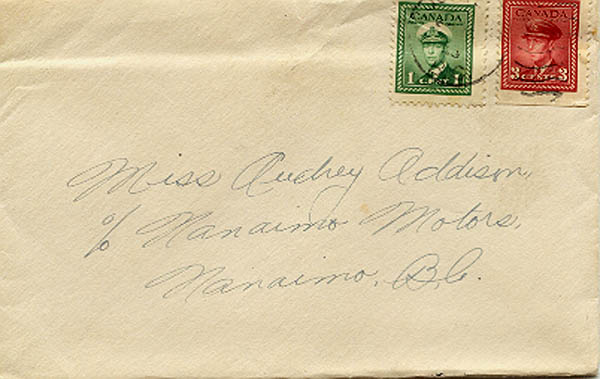 CANADA
1 CENT 1
CANADA
3 CENTS 3
Miss Audrey Addison,
c/o Nanaimo Motors,
Nanaimo, B.C.